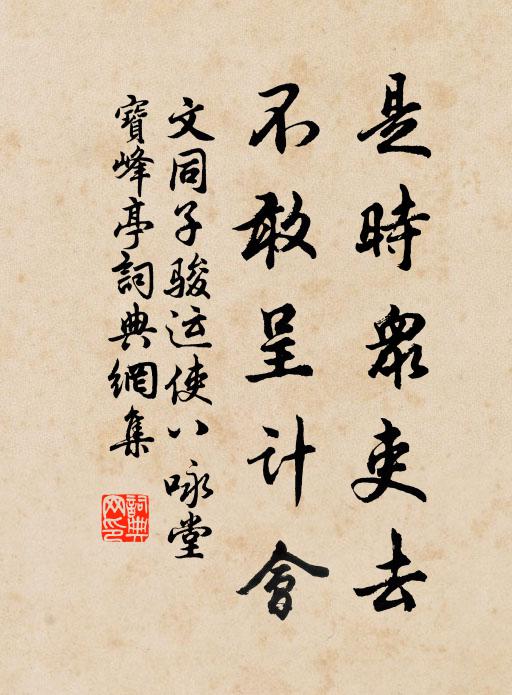 是時眾吏去
不敢呈計會
文同子駿运使八咏堂
寶峰亭詞典網集
詞典
网印